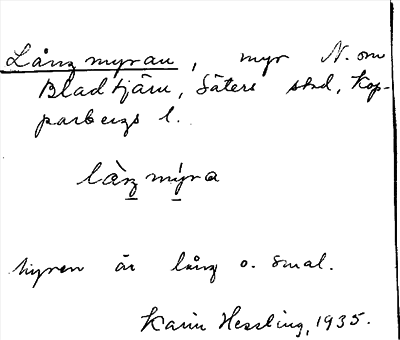 Långmyran, myr N. om
Bladtjärn, Säters stad, Kop-
parbergs l.
làŋmýra
Myren är lång o. smal.
Karin Hessling, 1935.